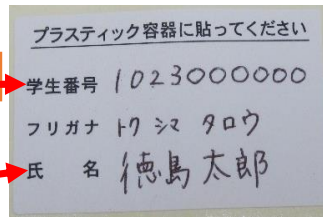 プラスティック容器に貼ってください
学生番号 1023000000
フリガナ トクシマ タロウ
氏 名 徳島太郎